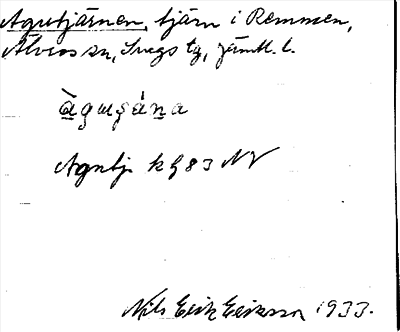 Agntjärnen, tjärn i Remmen,
Älvros sn, Svegs tg, Jämtl. l.
Agntj. k G83 NV
Nils Erik Eriksson 1933.